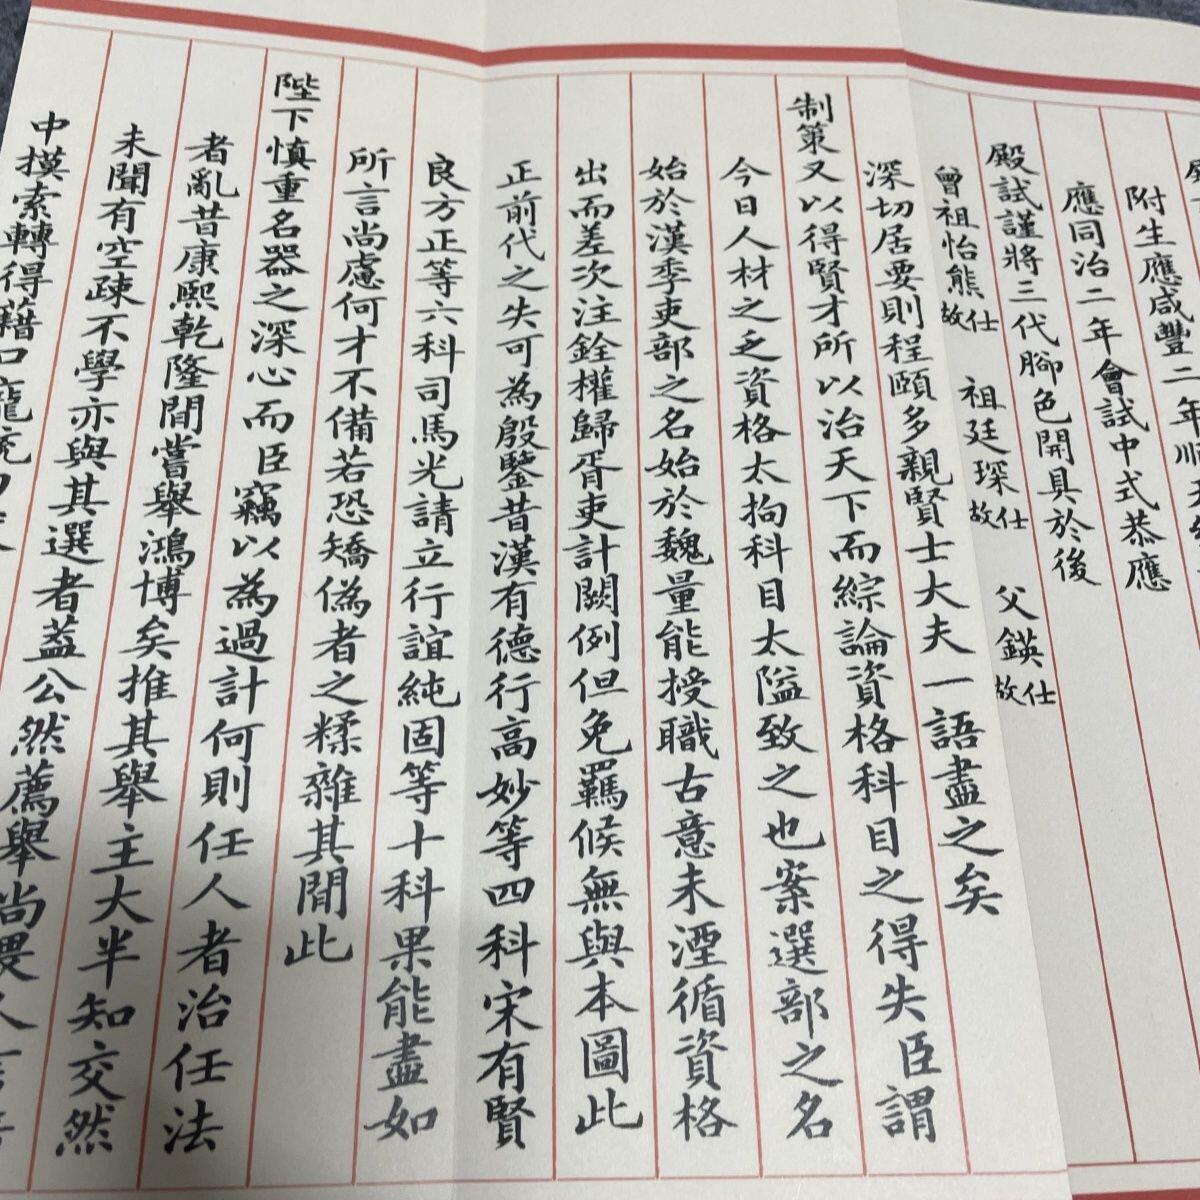 附生應咸豐二年順天
應同治二年會試中式恭應
殿試謹將三代腳色開具於後
曾祖怡熊故仕 祖廷琛故仕 父鍈故仕
深切居要則程頤多親賢士大夫一語盡之矣
制策又以得賢才所以治天下而綜論資格科目之得失臣謂
今日人材之乏資格太拘科目太隘致之也案選部之名
始於漢季吏部之名始於魏量能授職古意未湮循資格
出而差次注銓權歸胥吏計闕例但免羈候無與本圖此
正前代之失可為殷鑒昔漢有德行高妙等四科宋有賢
良方正等六科司馬光請立行誼純固等十科果能盡如
所言尚慮何才不備若恐矯偽者之糅雜其間此
陛下慎重名器之深心而臣竊以為過計何則任人者治任法
者亂昔康熙乾隆間嘗舉鴻博矣推其舉主大半知交然
未聞有空疎不學亦與其選者葢公然薦舉尚畏人言
中摸索轉得藉口